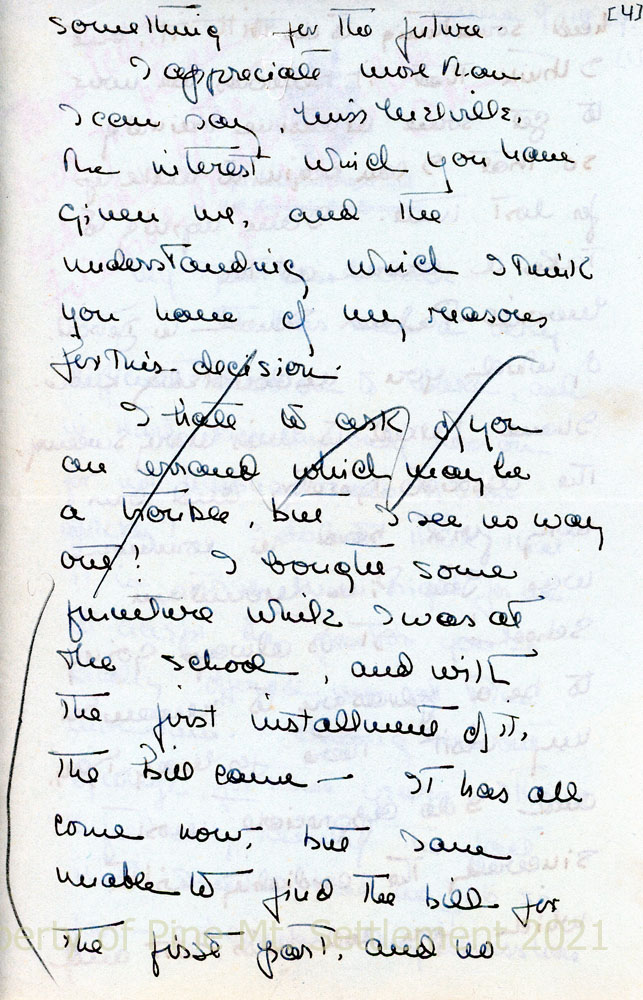 [4]
something for the future.
I appreciate more than
I can say, Miss Melville,
the interest which you have
given me, and the
understanding which I think
you have of my reasons
for this decision.
I hate to ask of you
an errand which may be
a trouble, but I see no way
out! I bought some
furniture while I was at
the school, and with
the first installment of it,
the bill came — It has all
come now, but I am
unable to find the bill for
the first part, and no
perty of Pine Mt. Settlement 2021